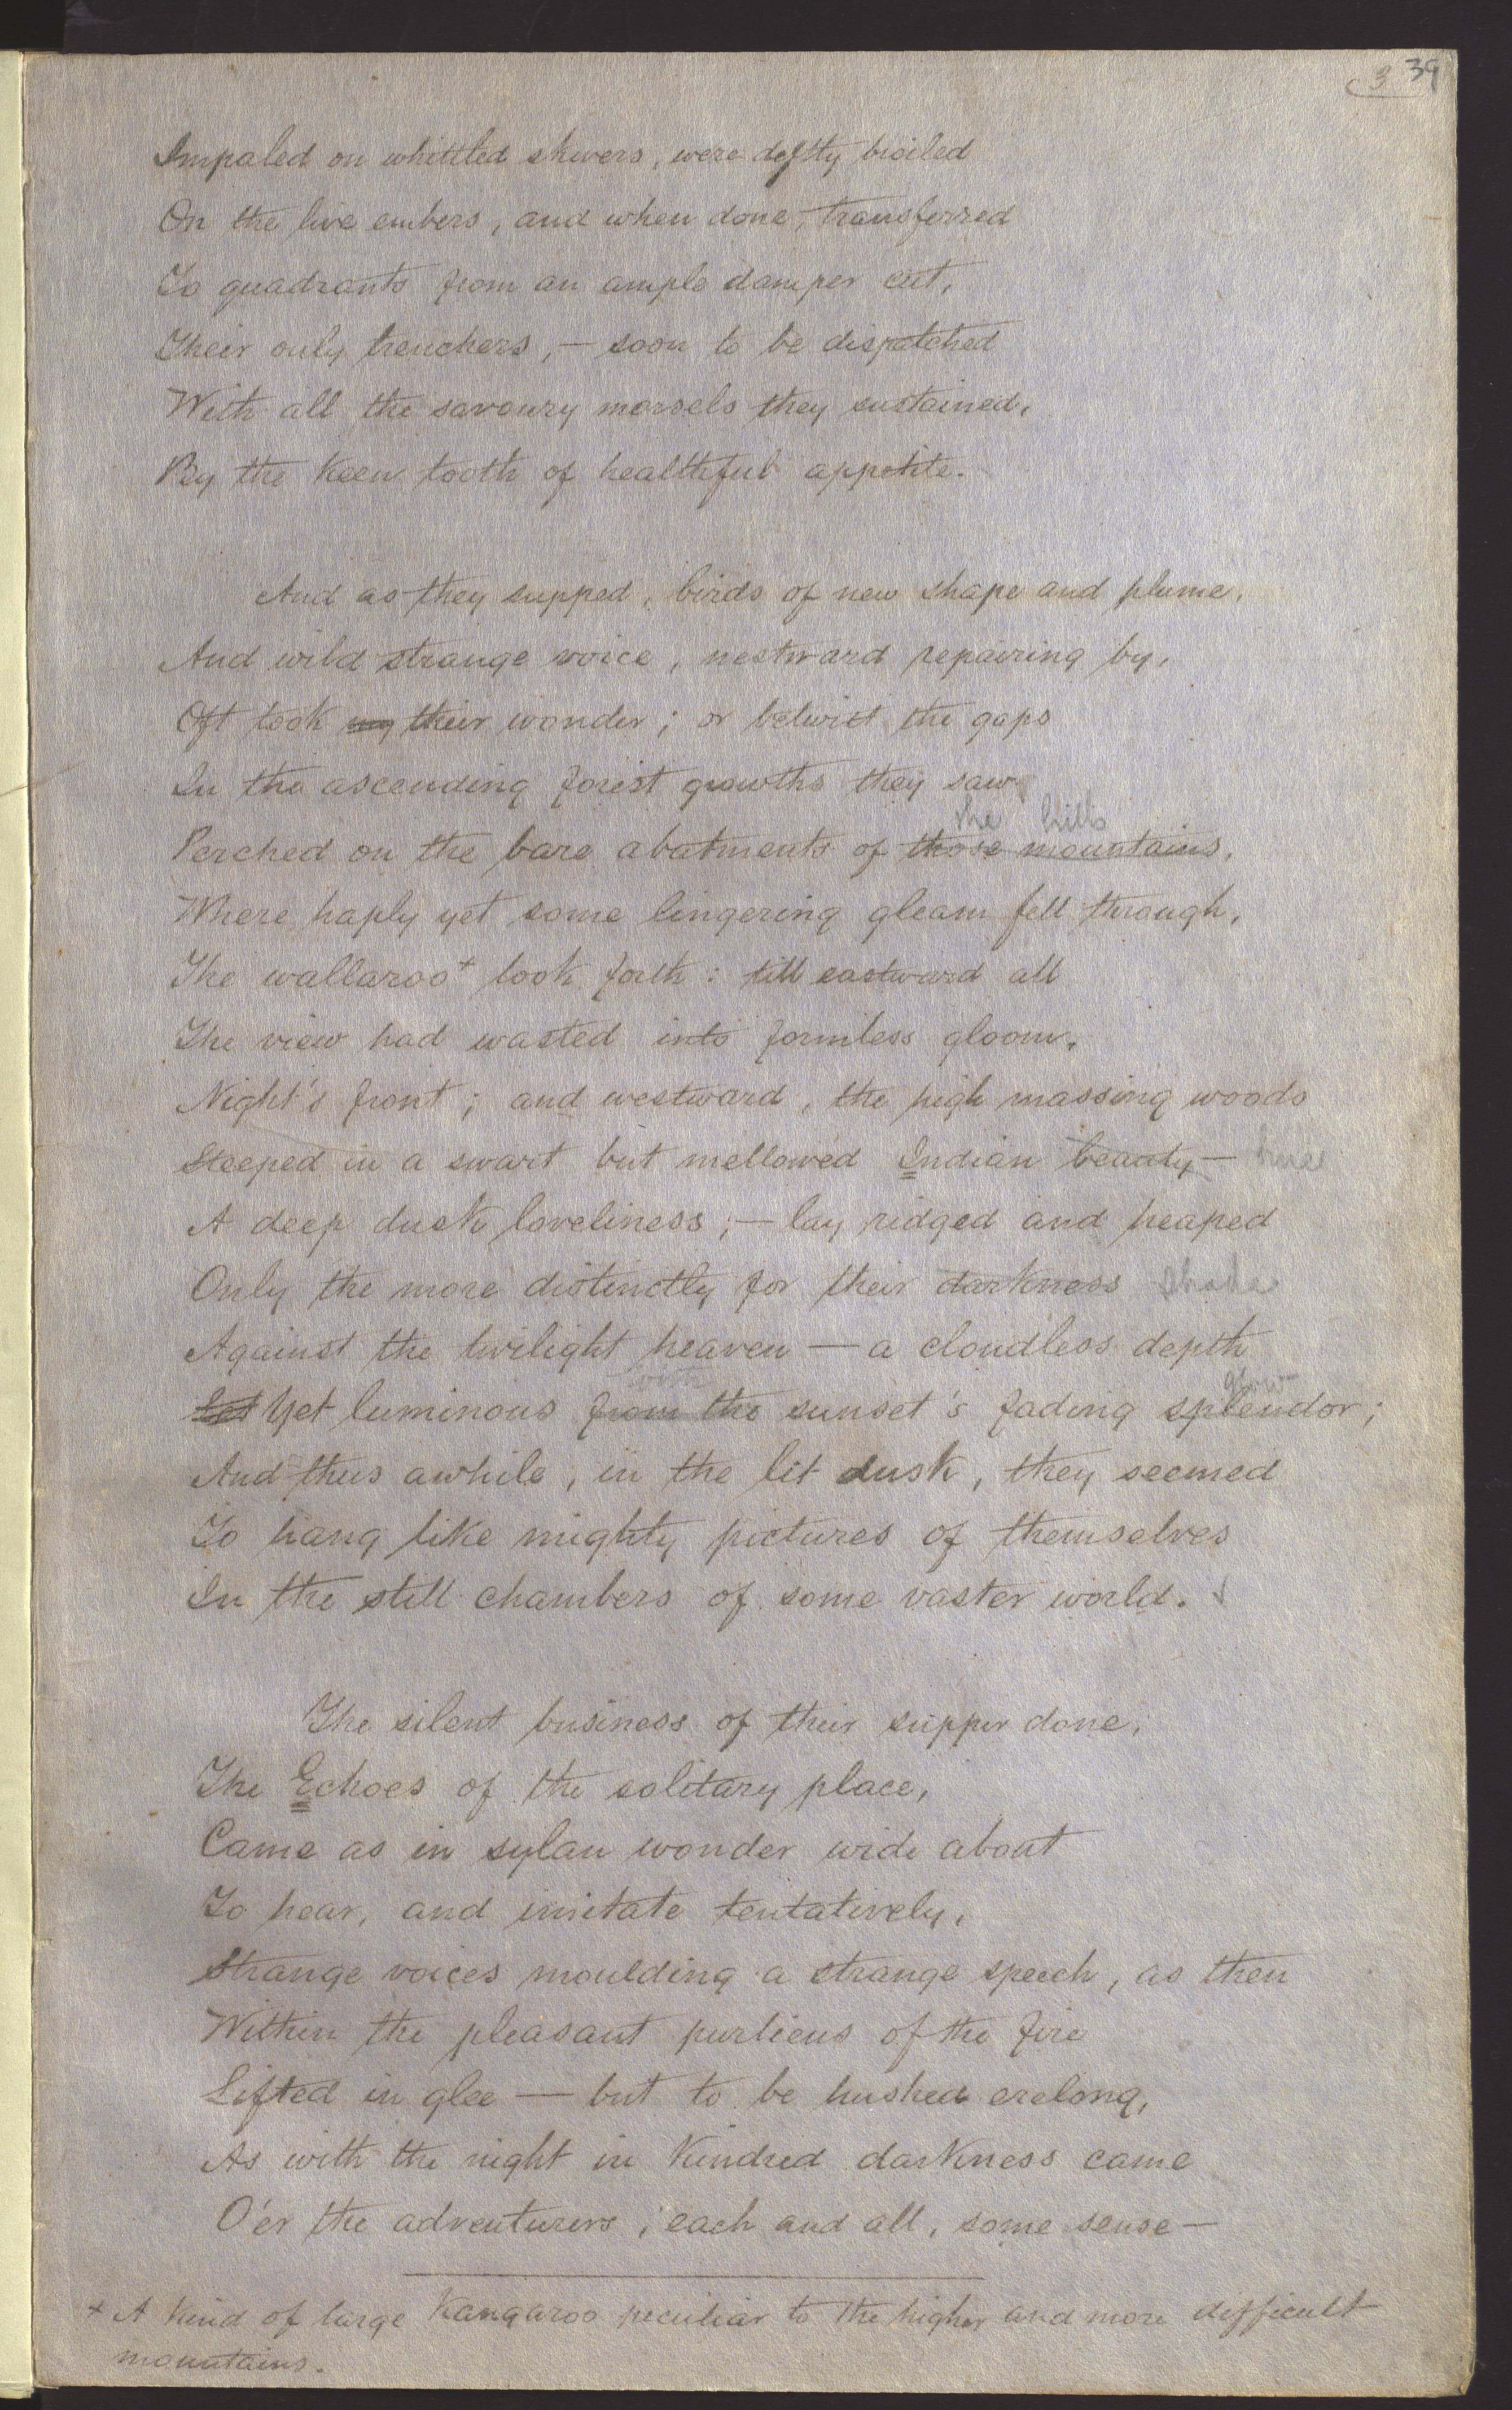 3 39
Impaled on whittled skivers, were deftly broiled
On the live embers, and when done, transferred
To quadrants from an ample damper cut,
Their only trenchers, — soon to be dispatched
With all the savoury morsels they sustained,
By the keen tooth of healthful appetite.
And as they supped, birds of new shape and plume,
And wild strange voice, nestward repairing by,
Oft took my their wonder; or betwixt the gaps
In the ascending forest growths they saw
the hills
Perched on the bare abatments of those mountains,
Where haply yet some lingering gleam fell through,
The wallaroo+ look forth: till eastward all
The view had wasted into formless gloom,
Night's front; and westward, the high massing woods
Steeped in a swart but mellowed Indian beauty — hue
A deep dusk loveliness; — lay ridged and heaped
Only the more distinctly for their darkness shade
Against the twilight heaven — a cloudless depth
with glow
Yet luminous from the sunset's fading splendor;
And thus awhile, in the lit dusk, they seemed
To hang like mighty pictures of themselves
In the still chambers of some vaster world.
The silent business of their supper done,
The Echoes of the solitary place,
Came as in sylan wonder wide about
To hear, and imitate tentatively,
Strange voices moulding a strange speech, as then
Within the pleasant purlieus of the fire
Lifted in glee — but to be hushed erelong,
As with the night in kindred darkness came
O'er the adventurers, each and all, some sense —
+ A kind of large Kangaroo peculiar to the higher and more difficult
mountains.